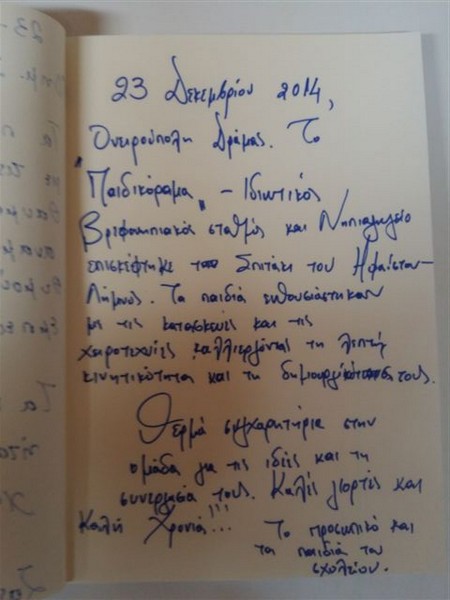 23 Δεκεμβρίου 2014,
Ονειρούπολη Δράμας. Το
"Παιδικόραμα" - Ιδιωτικός
Βρεφονηπιακός σταθμός και Νηπιαγωγείο
επισκέφτηκε το Σπιτάκι του Ηφαίστου -
Λήμνος. Τα παιδιά ενθουσιάστηκαν
με τις κατασκευές και τις
χειροτεχνίες καλλιεργώντας τη λεπτή
κινητικότητα και τη δημιουργικότητά τους.
Θερμά συγχαρητήρια στην
ομάδα για τις ιδέες και τη
συνεργασία τους. Καλές γιορτές και
Καλή Χρονιά!!! Το προσωπικό και
τα παιδιά του
σχολείου.